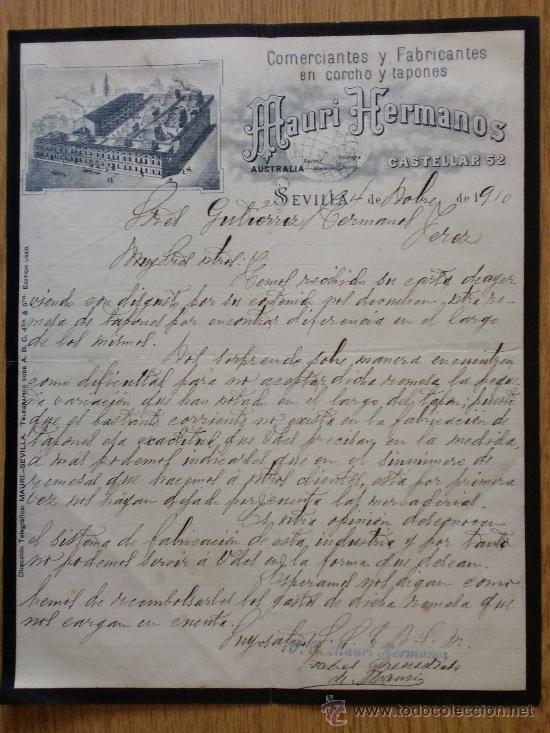 Comerciantes y Fabricantes
en corcho y tapones
Mauri Hermanos
AUSTRALIA
CASTELLAR 52
SEVILLA 24 de Nobre de 1910
Sres Gutierrez Hermanos
Jerez
Muy Sres ntros:
Hemos recibido su carta de ayer
viendo con disgusto por su contenido nos devuelven ntra re-
mesa de tapones por encontrar diferencia en el largo
de los mismos.
Nos sorprende sobre manera encuentren
como dificultad para no aceptar dicha remesa la peque-
ña variación que han notado en el largo del tapon; puesto
que es bastante corriente no exista en la fabricación de
tapones esa exactitud que Vdes precisan en la medida,
a más podemos indicarles que en el sinnúmero de
remesas que hacemos a otros clientes, esta por primera
vez nos hayan dejado por cuenta las mercaderias.
Es ntra opinión desconocen
el sistema de fabricación de esta industria y por tanto
no podemos servir á Vdes en la forma que desean.
Esperamos nos digan como
hemos de reembolsarles los gastos de dicha remesa que
nos cargan en cuenta.
Suyos afmos S. S. Q. B. S. M.
P. P. Mauri Hermanos
de Mauri
Dirección Telegráfica: MAURI.-SEVILLA. TELEGRAPHIC CODE A. B. C. 4TH & 5TH. EDITION USED
www.todocoleccion.net